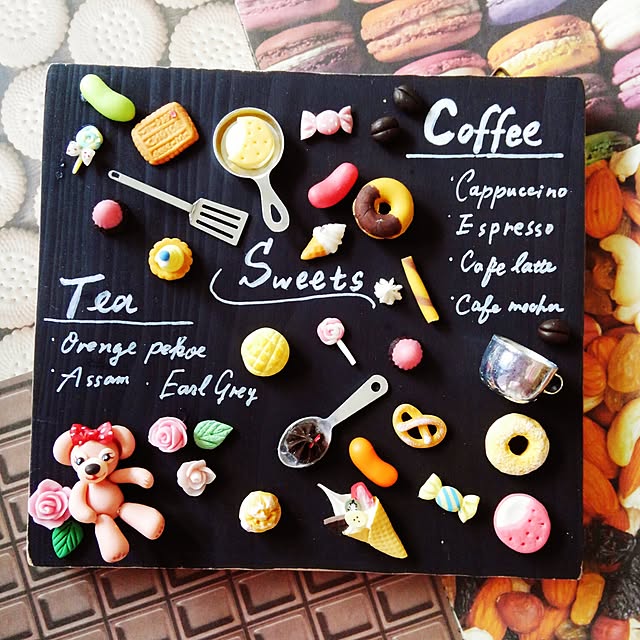 Coffee
· Cappuccino
· Espresso
· Cafe latte
· Cafe mocha
Sweets
Tea
· Orenge pekoe
· Assam · Earl Grey